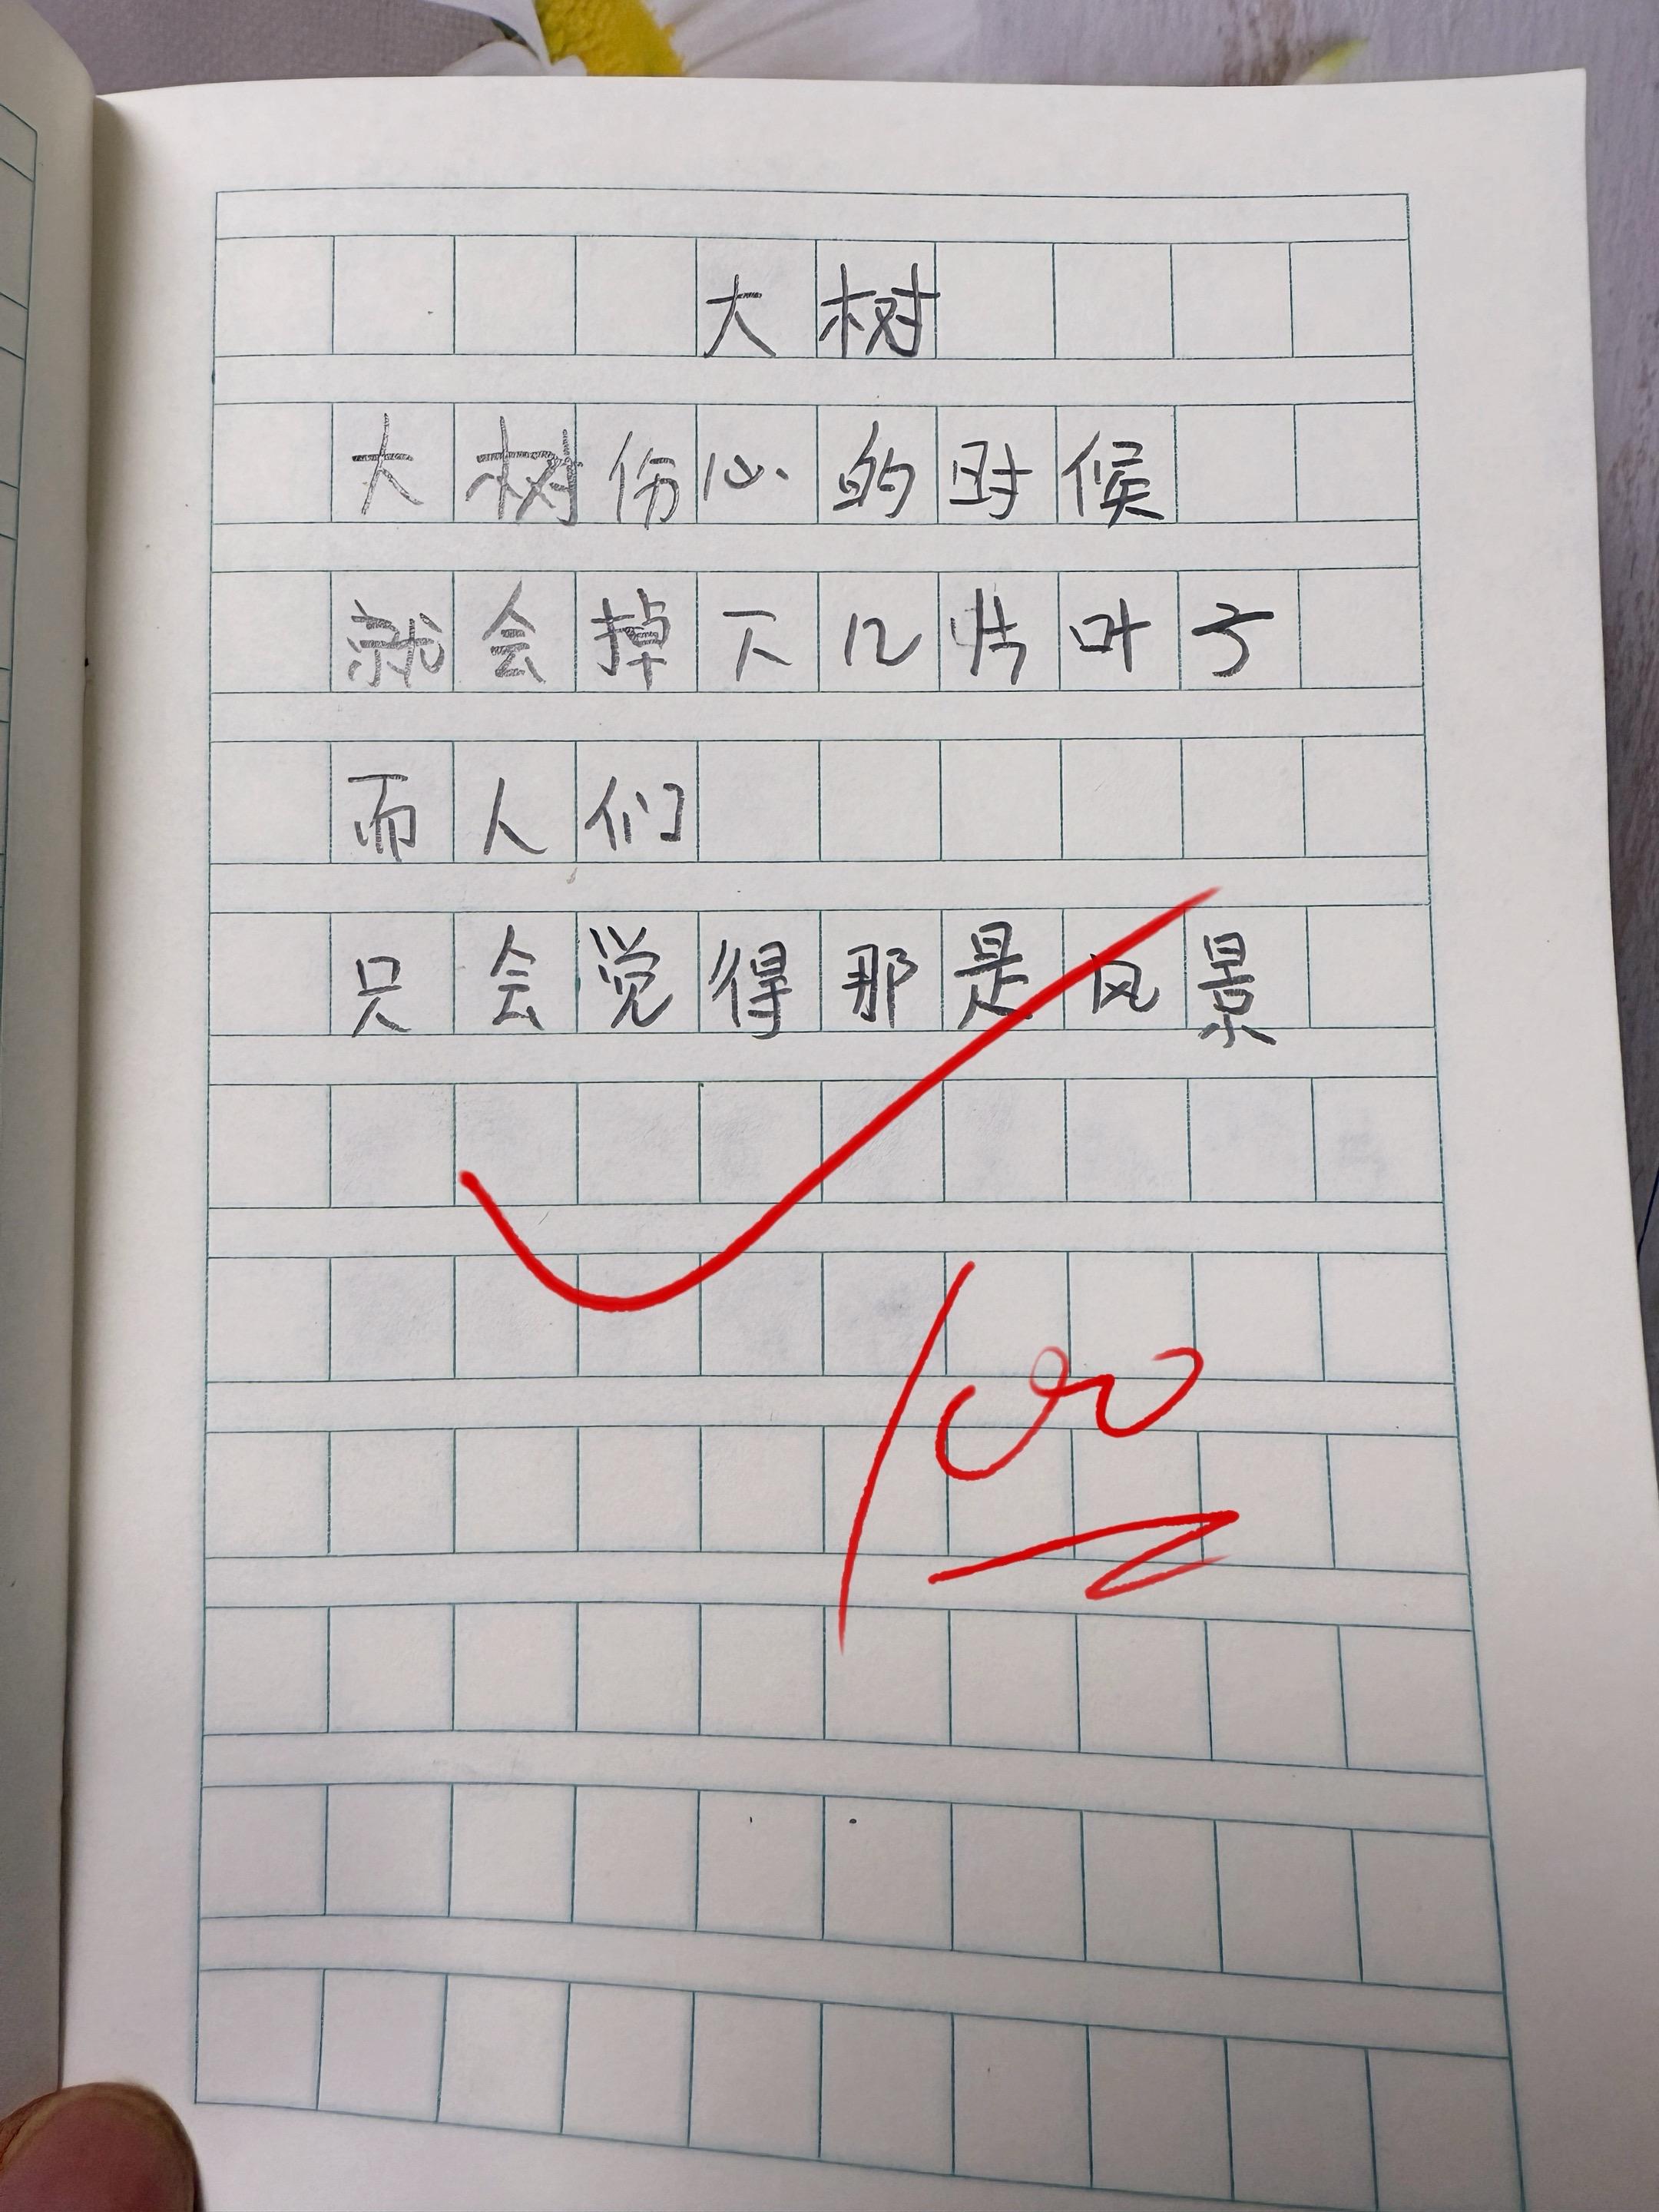 大树
大树伤心的时候
就会掉下几片叶子
而人们
只会觉得那是风景
100